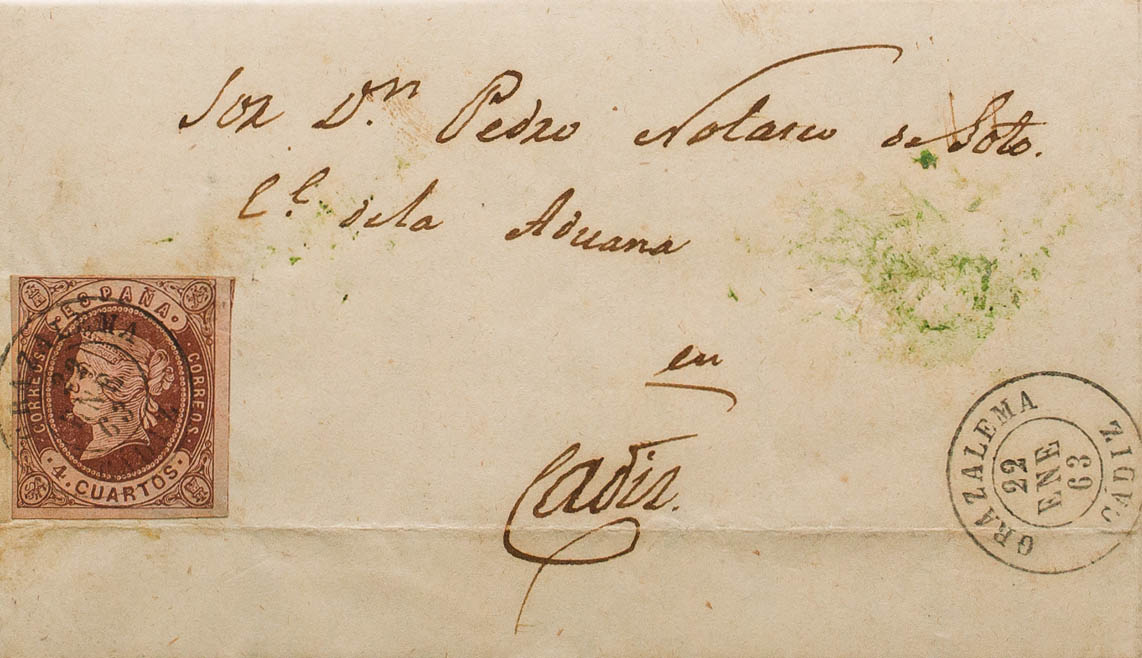 Sor Dn Pedro Notario de Soto.
Cl. de la Aduana
en
Cadiz.
ESPAÑA.
CORREOS
CORREOS.
4. CUARTOS.
GRAZALEMA
22
ENE
63
CADIZ
GRAZALEMA
22
ENE
63
CÁDIZ